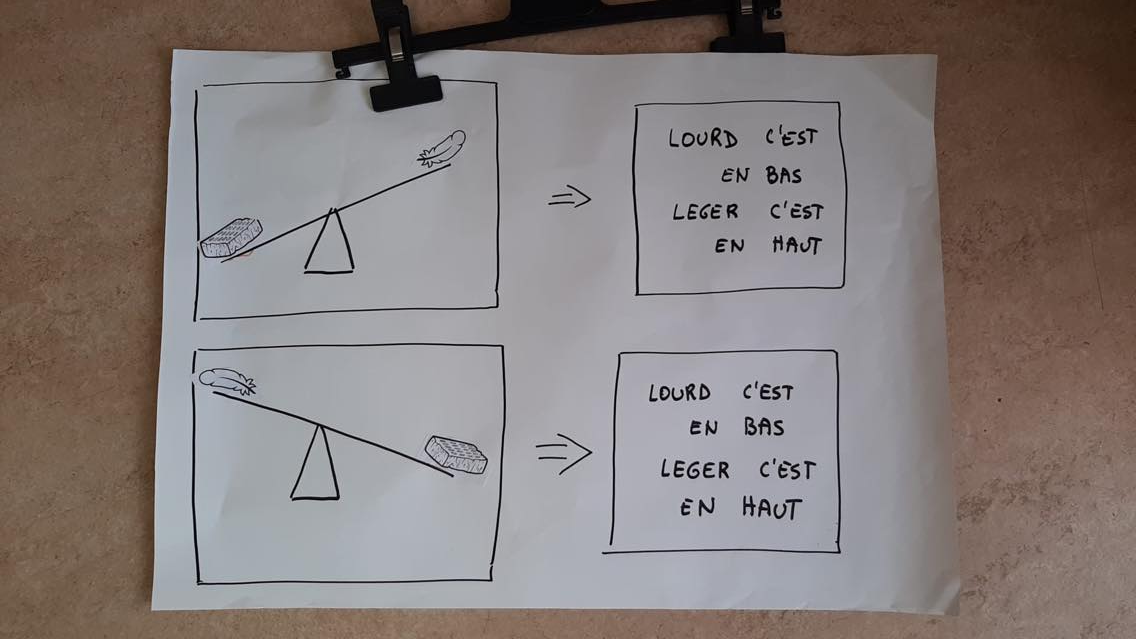 LOURD C'EST
EN BAS
LEGER C'EST
EN HAUT
LOURD C'EST
EN BAS
LEGER C'EST
EN HAUT